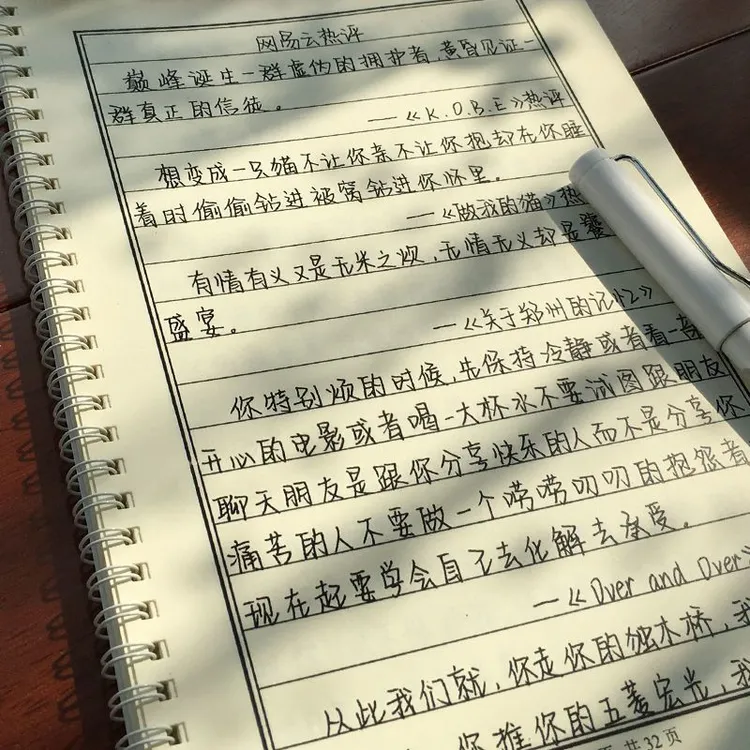 网易云热评
巅峰诞生一群虚伪的拥护者,黄昏见证一
群真正的信徒。
——《K.O.B.E》热评
想变成一只猫不让你亲不让你抱却在你睡
着时偷偷钻进被窝钻进你怀里。
——《做我的猫》热
有情有义又是无米之炊,无情无义却是饕
盛宴。
——《关于郑州的记忆》
你特别烦的时候,先保持冷静或者看一部
开心的电影或者喝一大杯水不要试图跟朋友
聊天朋友是跟你分享快乐的人而不是分享你
痛苦的人不要做一个唠唠叨叨的抱怨者
现在起要学会自己去化解去承受。
—《Over and Over》
从此我们就,你走你的独木桥,我
你推你的五菱宏光,我
共32页